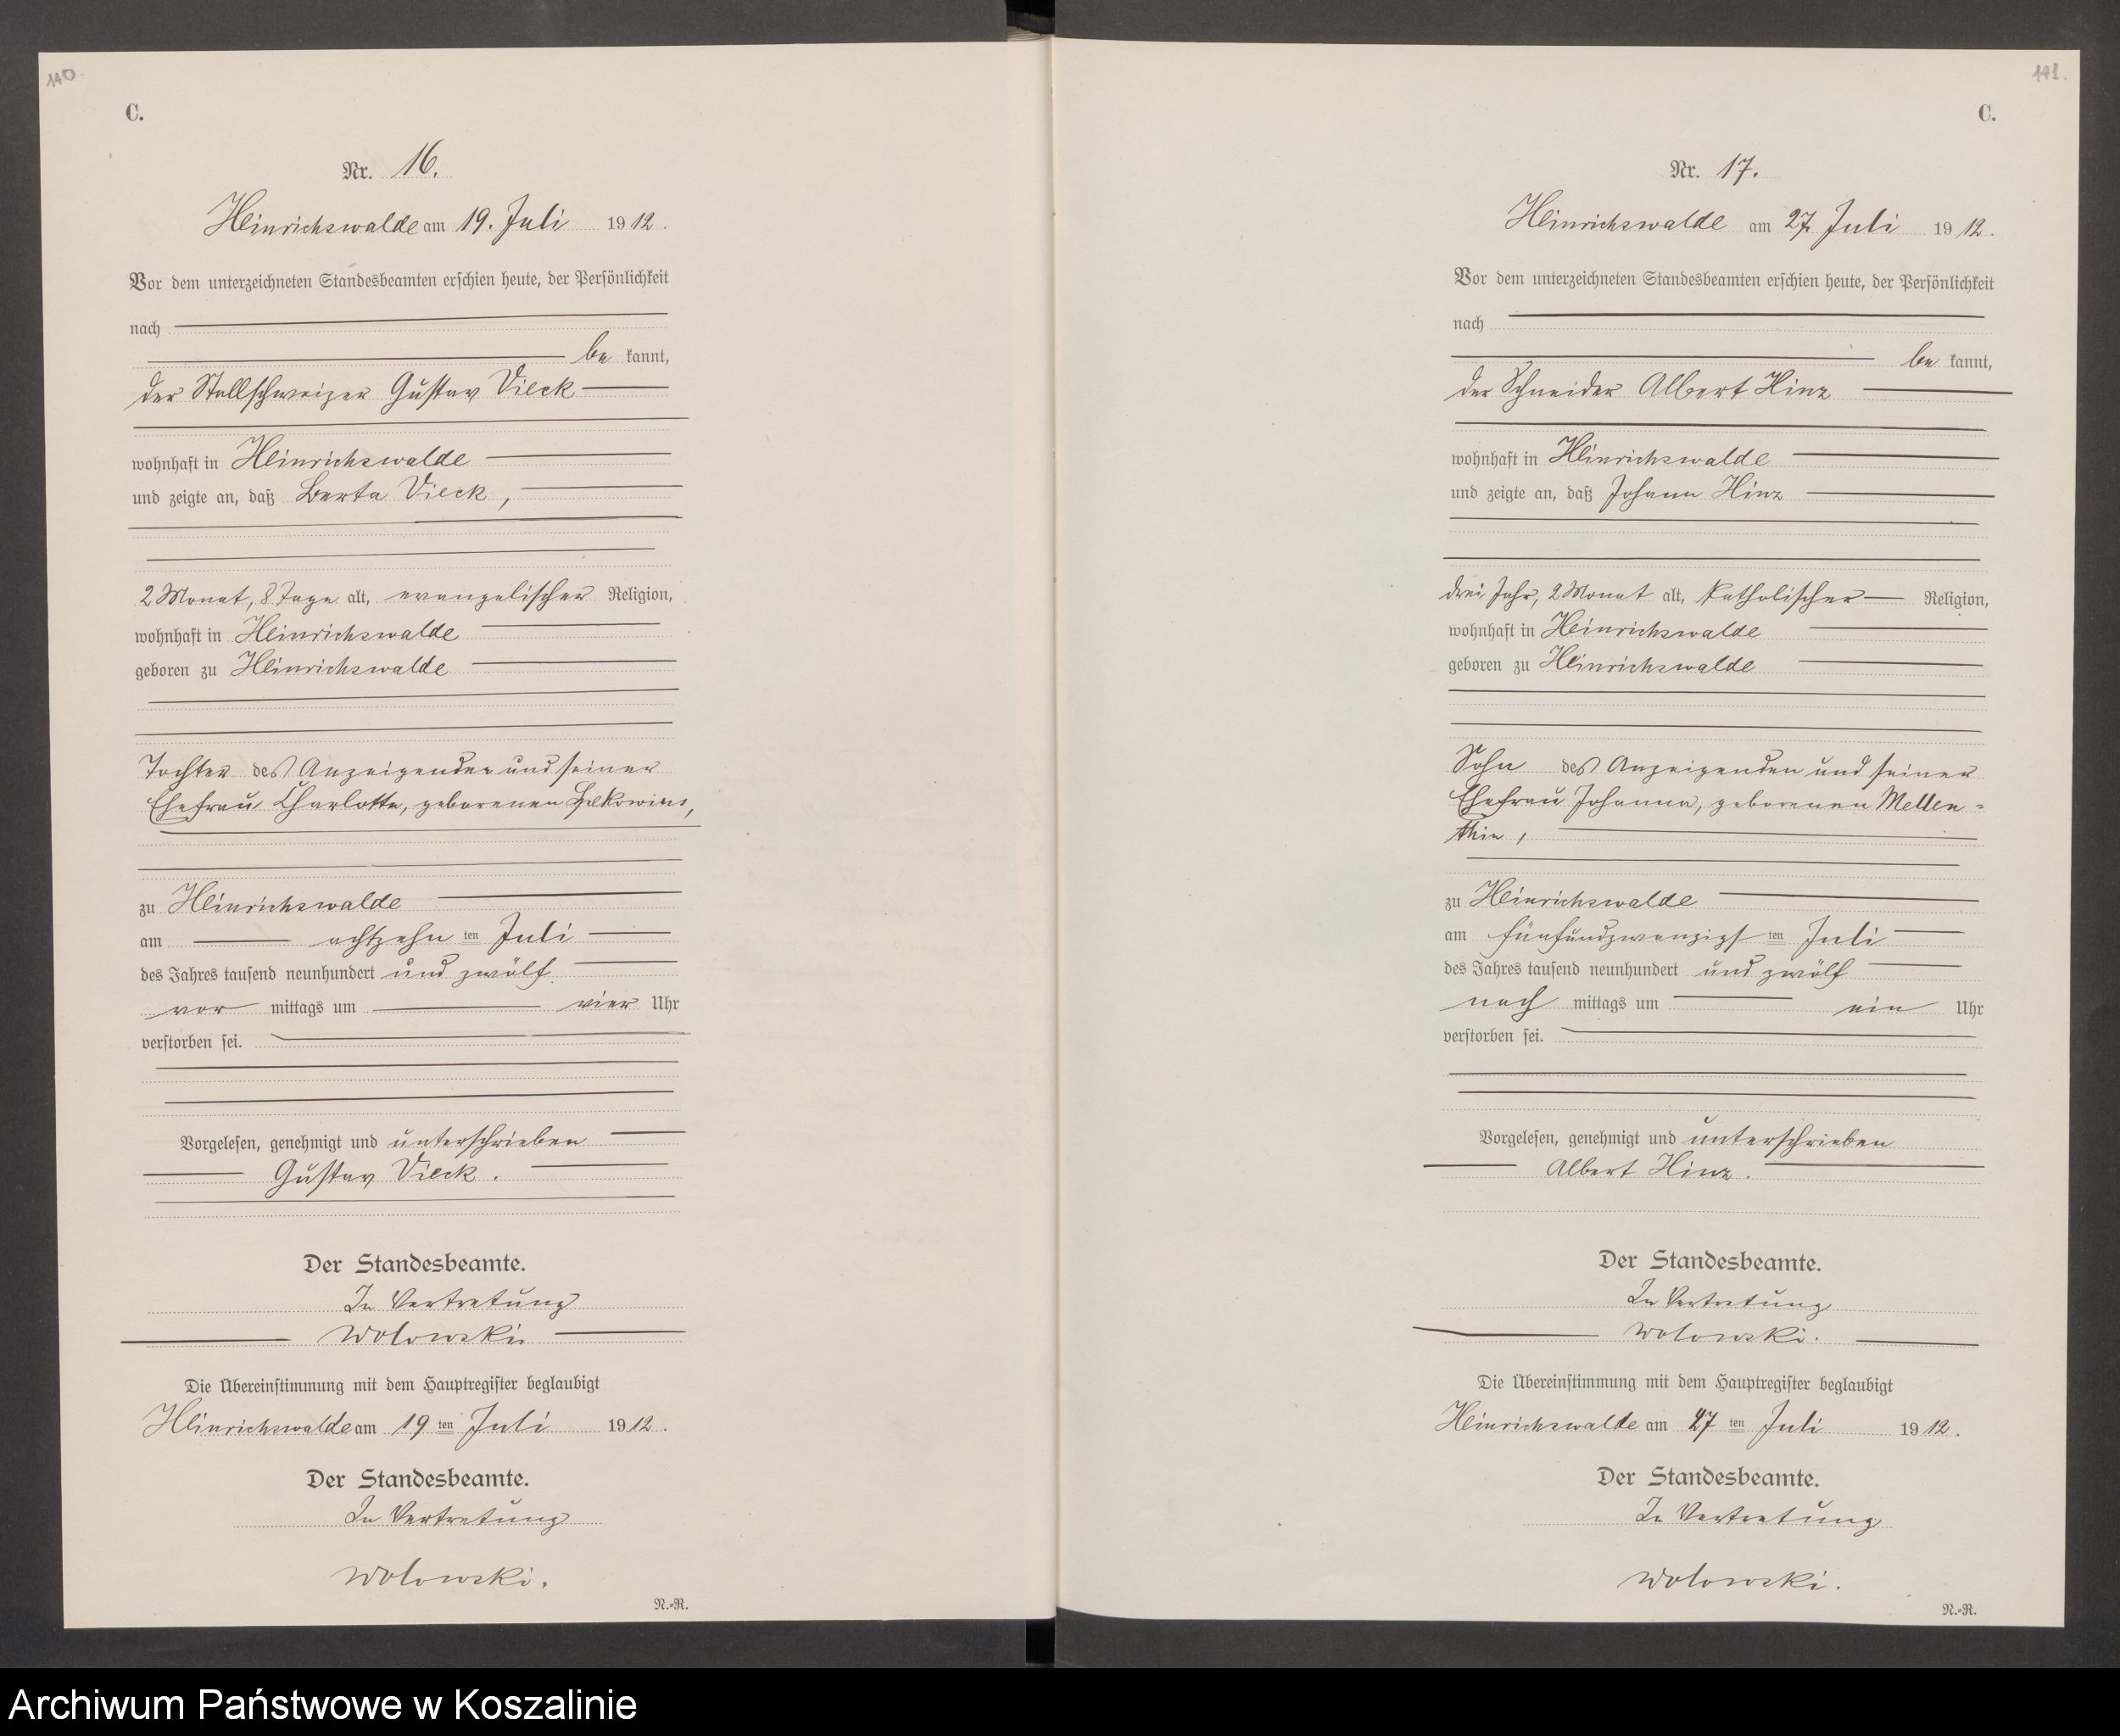 140
C.
Nr. 16.
Heinrichswalde am 19. Juli 1912.
Vor dem unterzeichneten Standesbeamten erschien heute, der Persönlichkeit
nach
be kannt,
der Stallschweizer Gustav Vieck
wohnhaft in Heinrichswalde
und zeigte an, daß Berta Vieck,
2 Monat, 8 Tage alt, evangelischer Religion,
wohnhaft in Heinrichswalde
geboren zu Heinrichswalde
Tochter des Anzeigenden und seiner
Ehefrau Charlotte, geborenen
zu Heinrichswalde
am achtzehn ten Juli
des Jahres tausend neunhundert und zwölf
vor mittags um vier Uhr
verstorben sei.
Vorgelesen, genehmigt und unterschrieben
Gustav Vieck.
Der Standesbeamte.
In Vertretung
Wolowski.
Die Übereinstimmung mit dem Hauptregister beglaubigt
Heinrichswalde am 19 ten Juli 1912.
Der Standesbeamte.
In Vertretung
Wolowski.
N.-R.
141.
C.
Nr. 17.
Heinrichswalde am 27 Juli 1912.
Vor dem unterzeichneten Standesbeamten erschien heute, der Persönlichkeit
nach
be kannt,
der Schneider Albert Hinz
wohnhaft in Heinrichswalde
und zeigte an, daß Johann Hinz
drei Jahr, 2 Monat alt, katholischer Religion,
wohnhaft in Heinrichswalde
geboren zu Heinrichswalde
Sohn des Anzeigenden und seiner
Ehefrau Johanna, geborenen Mellen=
thin,
zu Heinrichswalde
am fünfundzwanzigst ten Juli
des Jahres tausend neunhundert und zwölf
nach mittags um ein Uhr
verstorben sei.
Vorgelesen, genehmigt und unterschrieben
Albert Hinz.
Der Standesbeamte.
In Vertretung
Wolowski.
Die Übereinstimmung mit dem Hauptregister beglaubigt
Heinrichswalde am 27 ten Juli 1912.
Der Standesbeamte.
In Vertretung
Wolowski.
N.-R.
Archiwum Państwowe w Koszalinie